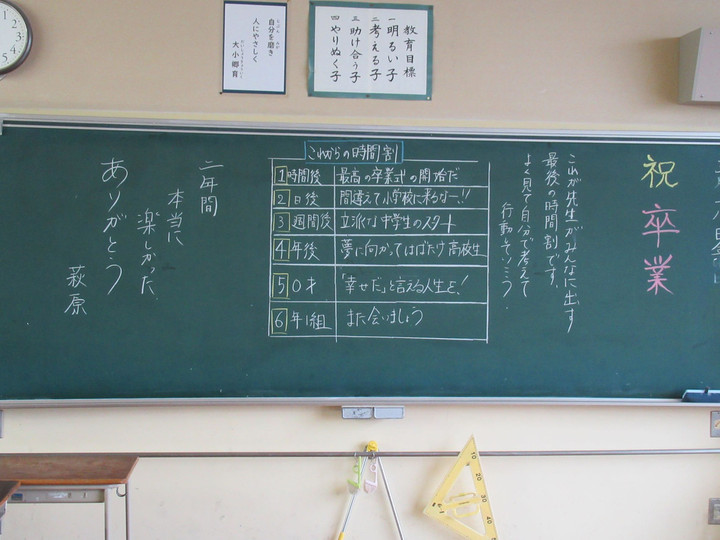 自分を磨き
人にやさしく
大小郷育
教育目標
一 明るい子
二 考える子
三 助け合う子
四 やりぬく子
祝 卒業
これが先生がみんなに出す
最後の時間割です。
よく見て自分で考えて
行動をしよう。
これからの時間割
1 時間後 最高の卒業式の開始だ
2 日後 間違えて小学校に来るなー!!
3 週間後 立派な中学生のスタート
4 年後 夢に向かってはばたけ高校生
5 0才 「幸せだ」と言える人生を!
6 年1組 また会いましょう
二年間
本当に
楽しかった
ありがとう
萩原
12
1
2
3
4
5
10
20
30
40